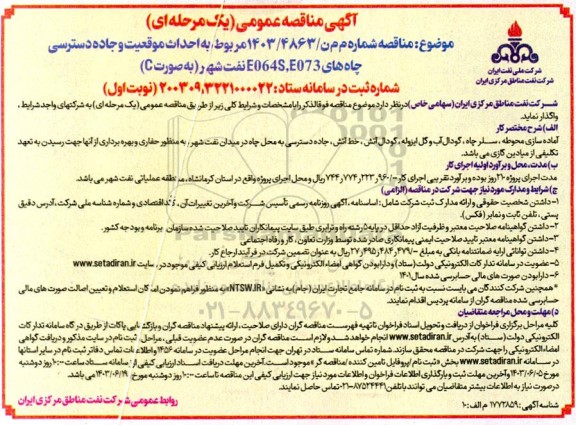 آگهی مناقصه عمومی (یک مرحله ای)
موضوع: مناقصه شماره م م ن/۱۴۰۳/۴۸۶۳ مربوط به احداث موقعیت و جاده دسترسی
چاه های E064S,E073 نفت شهر (به صورت C)
شماره ثبت در سامانه ستاد: ۲۰۰۳۰۹,۳۲۲۱۰۰۰۰۲۲ (نوبت اول)
شرکت ملی نفت ایران
شرکت نفت مناطق مرکزی ایران
شرکت نفت مناطق مرکزی ایران (سهامی خاص) در نظر دارد موضوع مناقصه فوق الذکر را با مشخصات و شرایط کلی زیر از طریق مناقصه عمومی (یک مرحله ای) به شرکتهای واجد شرایط،
واگذار نماید.
الف) شرح مختصر کار
آماده سازی محوطه، سلر چاه، گودال آب و گل ایزوله، گودال آتش، خط آتش، جاده دسترسی به محل چاه در میدان نفت شهر، به منظور حفاری و بهره برداری از آنها جهت رسیدن به تعهد
تکلیفی از میادین گازی می باشد.
ب) مدت، محل و برآورد اولیه اجرای کار
مدت اجرای پروژه ۲۱۰ روز بوده و برآورد تقریبی اجرای کار ۷۴۴,۷۷۴,۲۲۳,۹۶۰ ریال و محل اجرای پروژه واقع در استان کرمانشاه، منطقه عملیاتی نفت شهر می باشد.
ج) شرایط و مدارک مورد نیاز جهت شرکت در مناقصه (الزامی)
۱- داشتن شخصیت حقوقی و ارائه مدارک ثبت شرکت شامل: اساسنامه، آگهی روزنامه رسمی تأسیس شرکت و آخرین تغییرات آن، کد اقتصادی و شماره شناسه ملی شرکت، آدرس دقیق
پستی، تلفن ثابت و نمابر (فکس).
۲- داشتن گواهینامه صلاحیت معتبر و ظرفیت آزاد حداقل در پایه ۵ رشته راه و ترابری طبق سایت پیمانکاران تایید صلاحیت شده سازمان برنامه و بودجه کشور.
۳- داشتن گواهینامه معتبر تایید صلاحیت ایمنی پیمانکاری صادر شده توسط وزارت تعاون، کار و رفاه اجتماعی
۴- داشتن توانائی ارایه ضمانتنامه بانکی به مبلغ ریال به عنوان تضمین شرکت در فرآیند ارجاع کار.
۵- عضویت در سامانه تدارکات الکترونیکی دولت (ستاد) و دارا بودن گواهی امضاء الکترونیکی و تکمیل فرم استعلام ارزیابی کیفی موجود در سایت www.setadiran.ir
۶- دارا بودن صورت های مالی حسابرسی شده سال ۱۴۰۱
* همچنین شرکت کنندگان می بایست نسبت به ثبت نام در سامانه جامع تجارت ایران (جام) به نشانی «NTSW.IR» به منظور فراهم نمودن امکان استعلام و تعیین اصالت صورت های مالی
حسابرسی شده مناقصه گران از سامانه پردیس اقدام نمایند.
د) مهلت و محل مراجعه متقاضیان
کلیه مراحل برگزاری فراخوان از دریافت و تحویل اسناد فراخوان تا تهیه فهرست مناقصه گران دارای صلاحیت، ارائه پیشنهاد مناقصه گران و بازگشایی پاکات از طریق درگاه سامانه تدارکات
الکترونیکی دولت (ستاد) به آدرس www.setadiran.ir انجام خواهد شد. لازم است مناقصه گران در صورت عدم عضویت قبلی، مراحل ثبت نام در سایت مذکور و دریافت گواهی
امضاء الکترونیکی را جهت شرکت در مناقصه محقق سازند. شماره تماس سامانه ستاد در تهران جهت انجام مراحل عضویت در سامانه ۱۴۵۶ و اطلاعات تماس دفاتر ثبت نام در سایر استانها
در سامانه www.setadiran.ir بخش «ثبت نام / پروفایل تامین کننده / مناقصه گر» موجود است. آخرین مهلت دریافت اسناد ارزیابی کیفی از سامانه ستاد ساعت ۱۰:۰۰ روز دوشنبه
مورخ ۱۴۰۳/۰۶/۰۵ و آخرین مهلت ثبت و بارگذاری اطلاعات فراخوان و اطلاعات مورد نیاز جهت ارزیابی کیفی این مناقصه تا ساعت ۱۰:۰۰ روز دوشنبه مورخ ۱۴۰۳/۰۶/۱۹ می باشد.
در صورت نیاز به اطلاعات بیشتر متقاضیان می توانند با تلفن ۸۷۵۲۴۴۴۱-۰۲۱ تماس حاصل نمایند.
شناسه آگهی: ۱۷۷۲۸۵۹ م الف: ۱۰
روابط عمومی شرکت نفت مناطق مرکزی ایران
۰۲۱-۸۸۳۴۹۶۷۰-۵